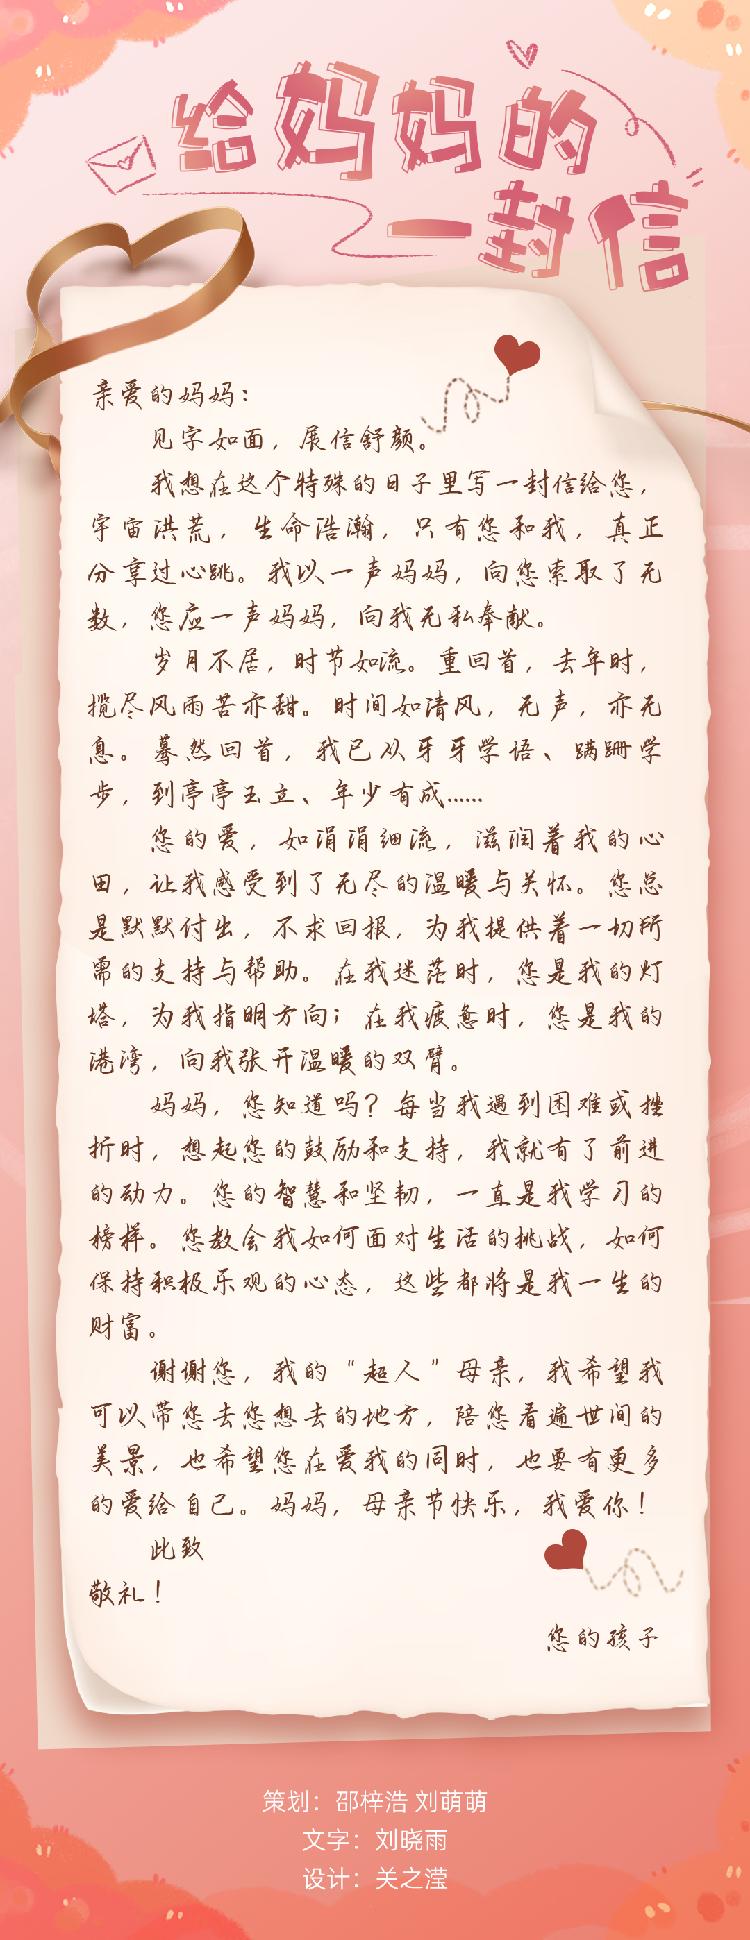 给妈妈的
一封信
亲爱的妈妈：
见字如面，展信舒颜。
我想在这个特殊的日子里写一封信给您，
宇宙洪荒，生命浩瀚，只有您和我，真正
分享过心跳。我以一声妈妈，向您索取了无
数，您应一声妈妈，向我无私奉献。
岁月不居，时节如流。重回首，去年时，
揽尽风雨苦亦甜。时间如清风，无声，亦无
息。蓦然回首，我已从牙牙学语、蹒跚学
步，到亭亭玉立、年少有成……
您的爱，如涓涓细流，滋润着我的心
田，让我感受到了无尽的温暖与关怀。您总
是默默付出，不求回报，为我提供着一切所
需的支持与帮助。在我迷茫时，您是我的灯
塔，为我指明方向；在我疲惫时，您是我的
港湾，向我张开温暖的双臂。
妈妈，您知道吗？每当我遇到困难或挫
折时，想起您的鼓励和支持，我就有了前进
的动力。您的智慧和坚韧，一直是我学习的
榜样。您教会我如何面对生活的挑战，如何
保持积极乐观的心态，这些都将是我一生的
财富。
谢谢您，我的“超人”母亲，我希望我
可以带您去您想去的地方，陪您看遍世间的
美景，也希望您在爱我的同时，也要有更多
的爱给自己。妈妈，母亲节快乐，我爱你！
此致
敬礼！
您的孩子
策划：邵梓浩 刘萌萌
文字：刘晓雨
设计：关之滢